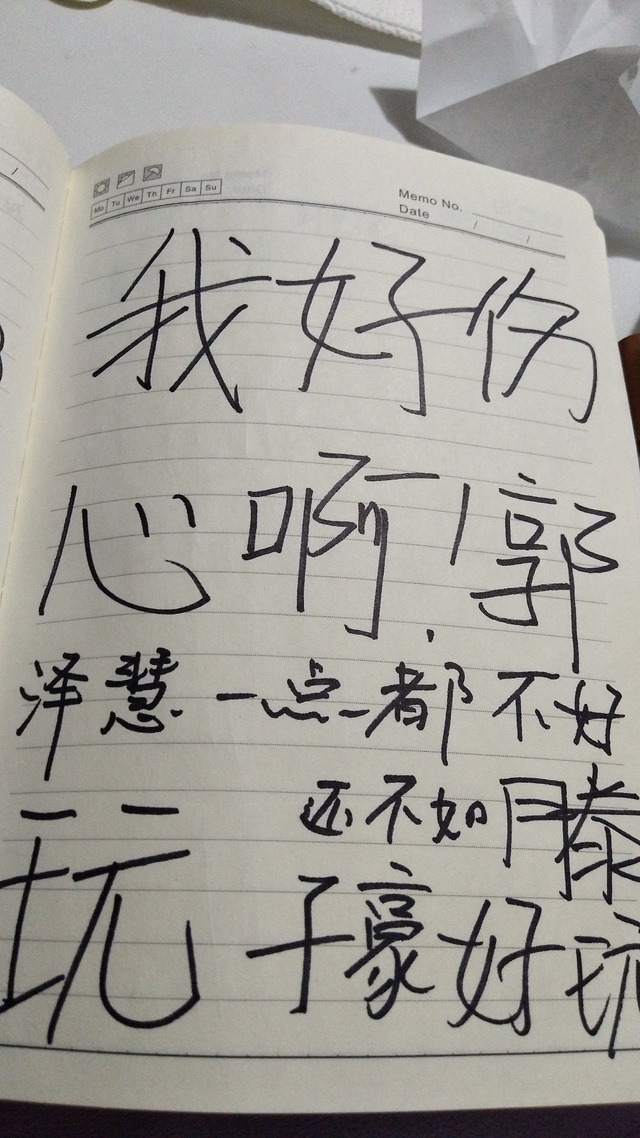 Mo Tu We Th Fr Sa Su
Memo No.
Date / /
我好伤
心啊！郭
泽慧一点都不好
还不如滕
玩 子豪好玩